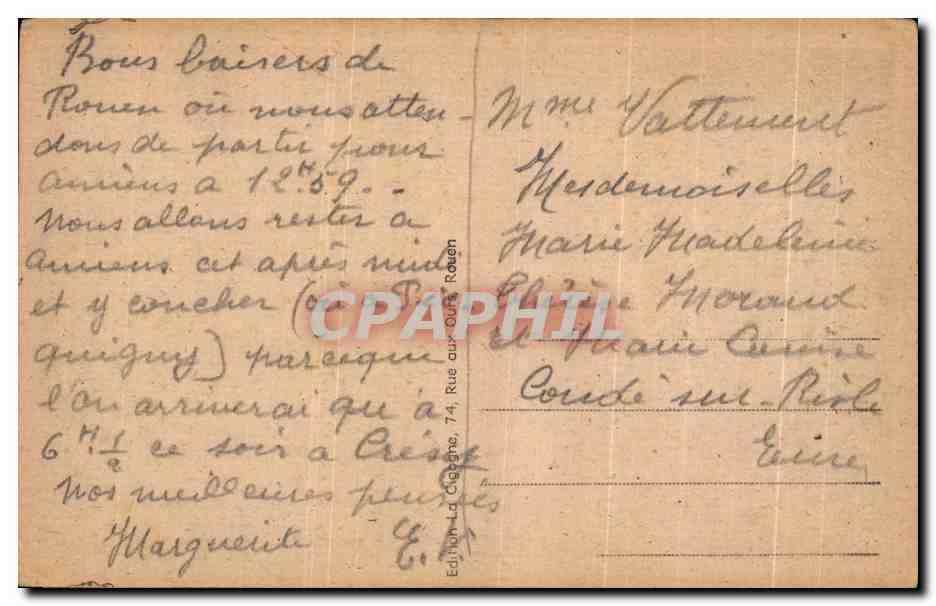 Bons baisers de
Rouen où nous atten-
dons de partir pour
Amiens à 12H59.-
Nous allons rester à
Amiens cet après midi
et y coucher (ou à Pic-
quigny) parceque
l'on arriverai qu'à
6H 1/2 ce soir à Crésy
Nos meilleures pensées
Marguerite E.
Edition La Cigogne, 74, Rue aux Ours, Rouen
Mme Vattement
Mesdemoiselles
Marie Madeleine
Morand
et
Condé sur-Risle
Eure
CPAPHIL